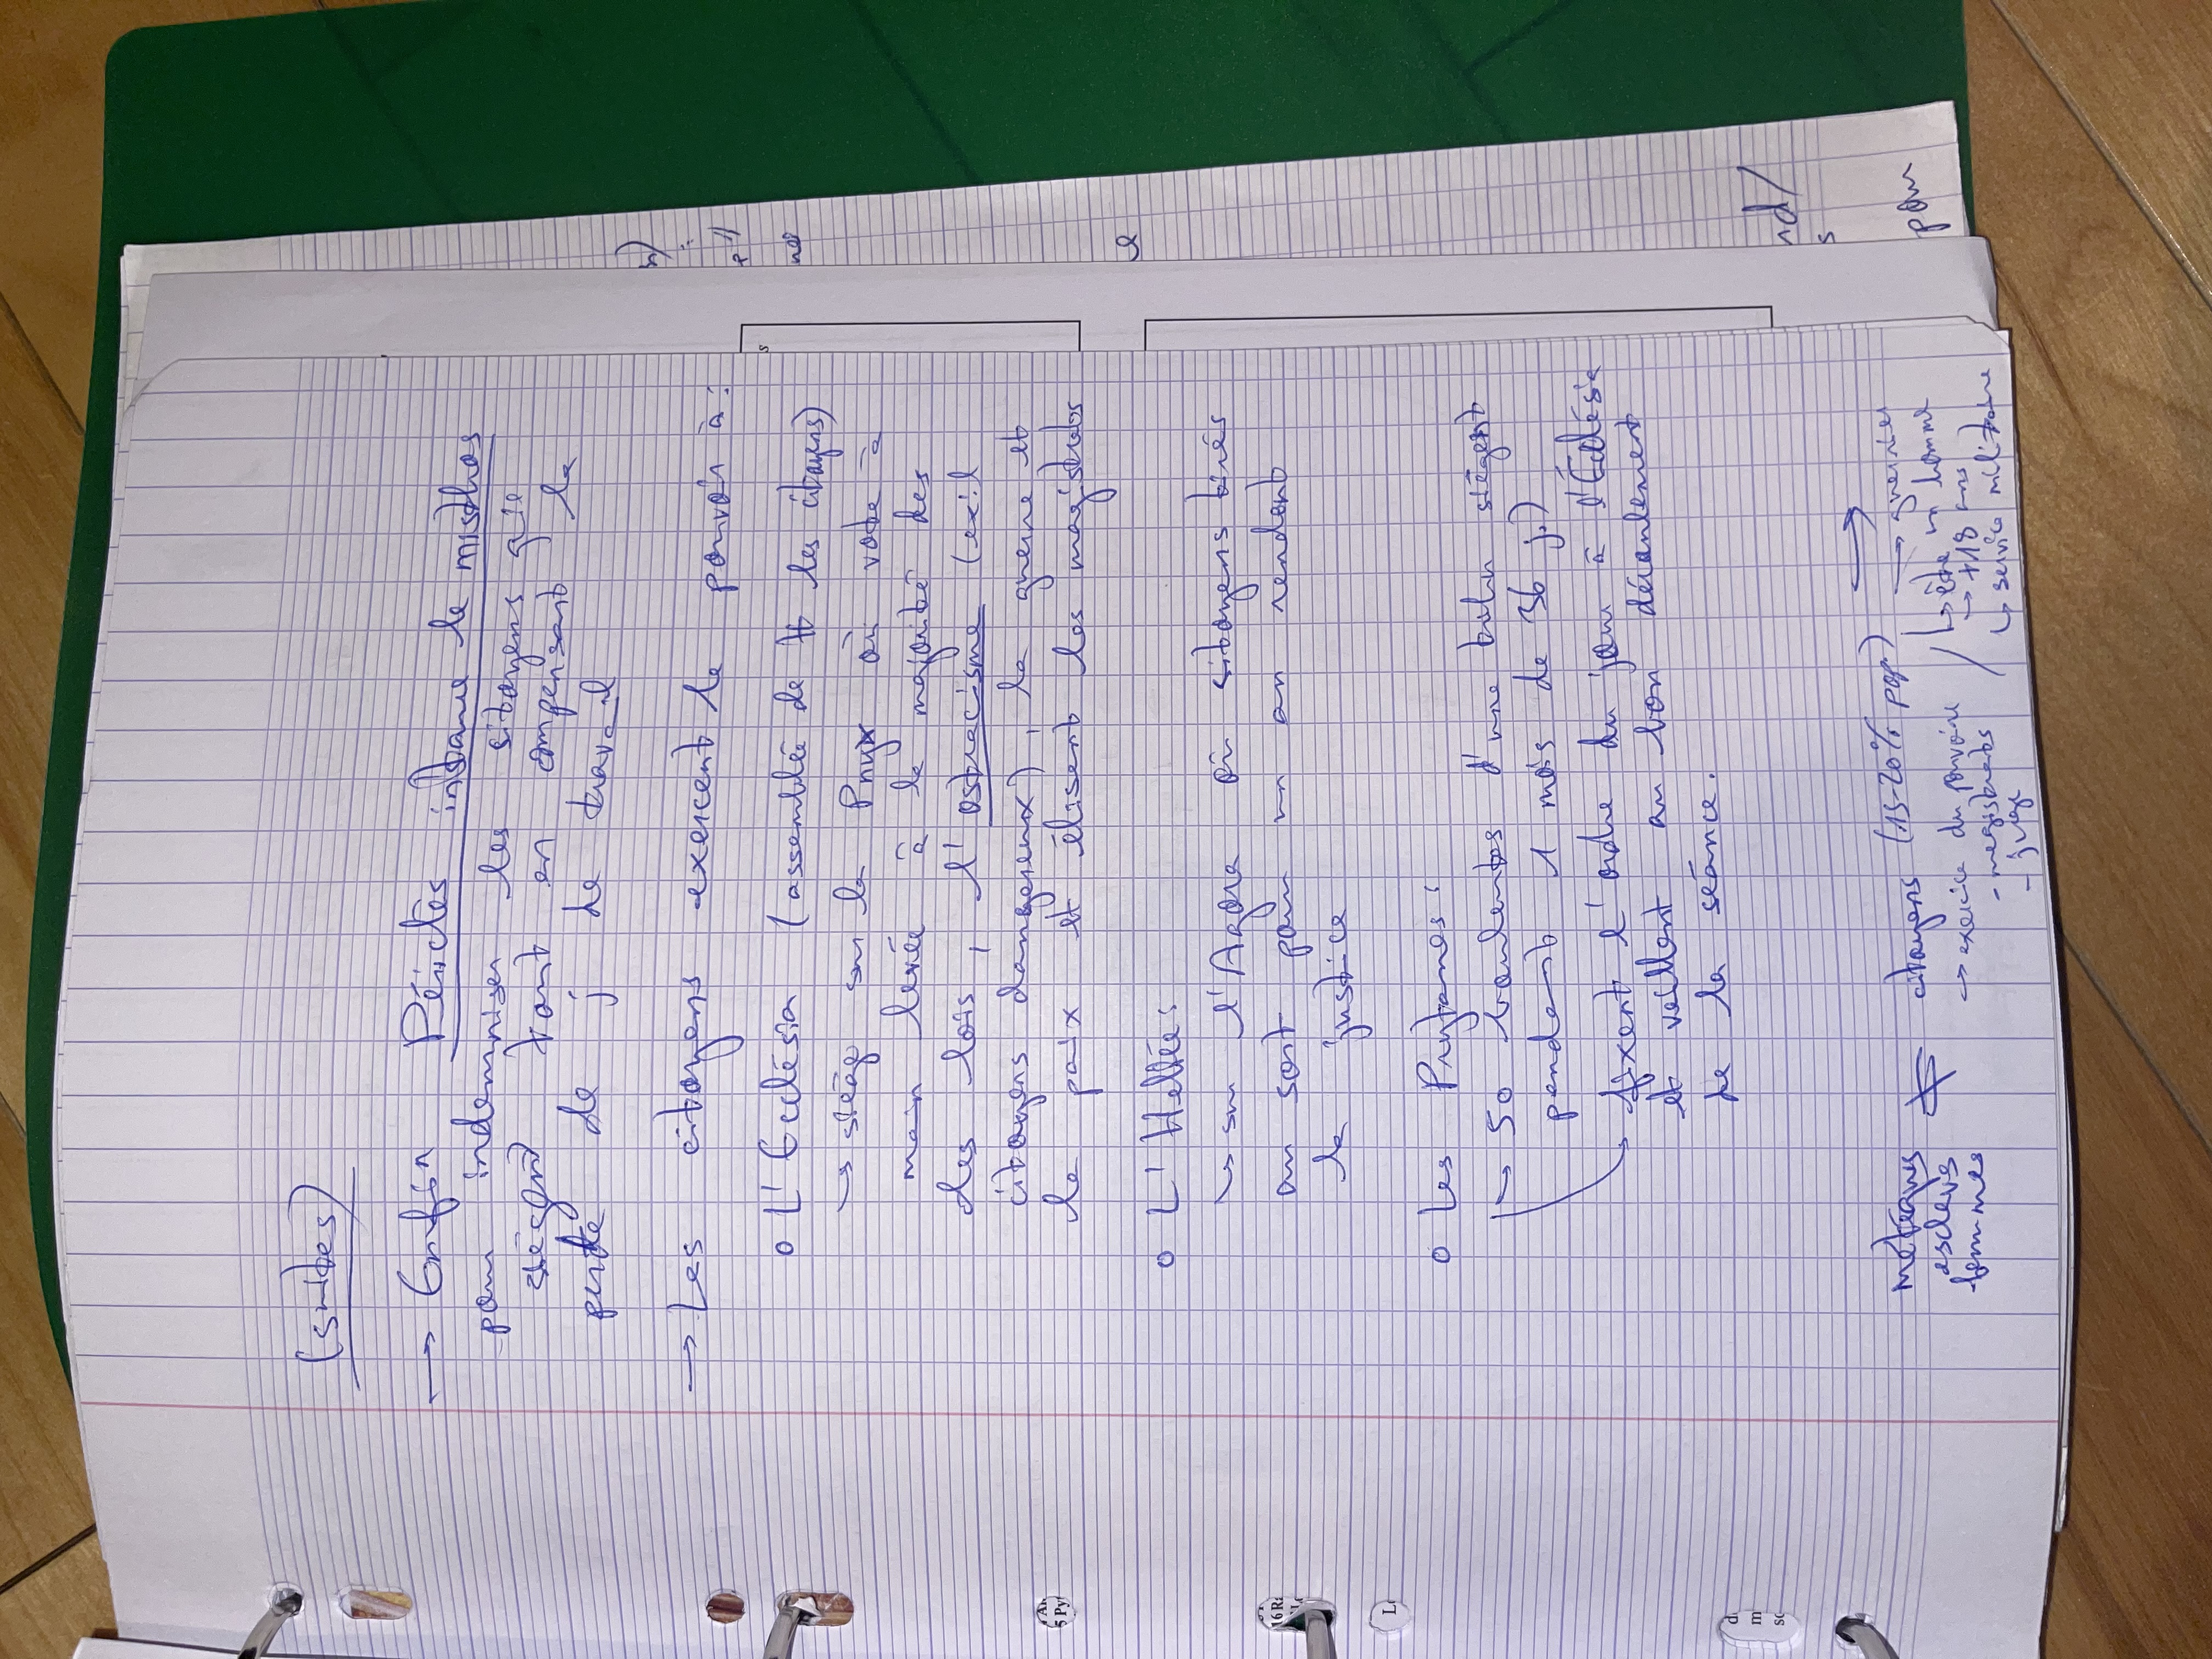 (suites)
→ Enfin Périclès instaure le misthos
pour indemniser les citoyens qui
siègent tout en compensant la
perte de j de travail
→ Les citoyens exercent le pouvoir à :
o L'Ecclésia (assemblée de tt les citoyens)
→ siège sur la Pnyx où vote à
main levée à la majorité des
des lois, l'ostracisme (exil
citoyens dangereux), la guerre et
la paix et élisent les magistrats
o L'Héliée :
→ sur l'Agora où citoyens tirés
au sort pour un an rendent
la justice
o Les Prytanes :
→ 50 bouleutes d'une tribu siègent
pendant 1 mois de 36 j.)
→ fixent l'ordre du jour à l'Ecclésia
et veillent au bon déroulement
de la séance.
métèques ≠ citoyens (15-20% pop.) → guerries
esclaves → exercice du pouvoir / ↳ être un homme
femmes - magistrats / → +18 ans
- juge ↳ service militaire
n)
p//
ne
e
nd/
s
pour
s
5 Py
16 R
L
d
m
se